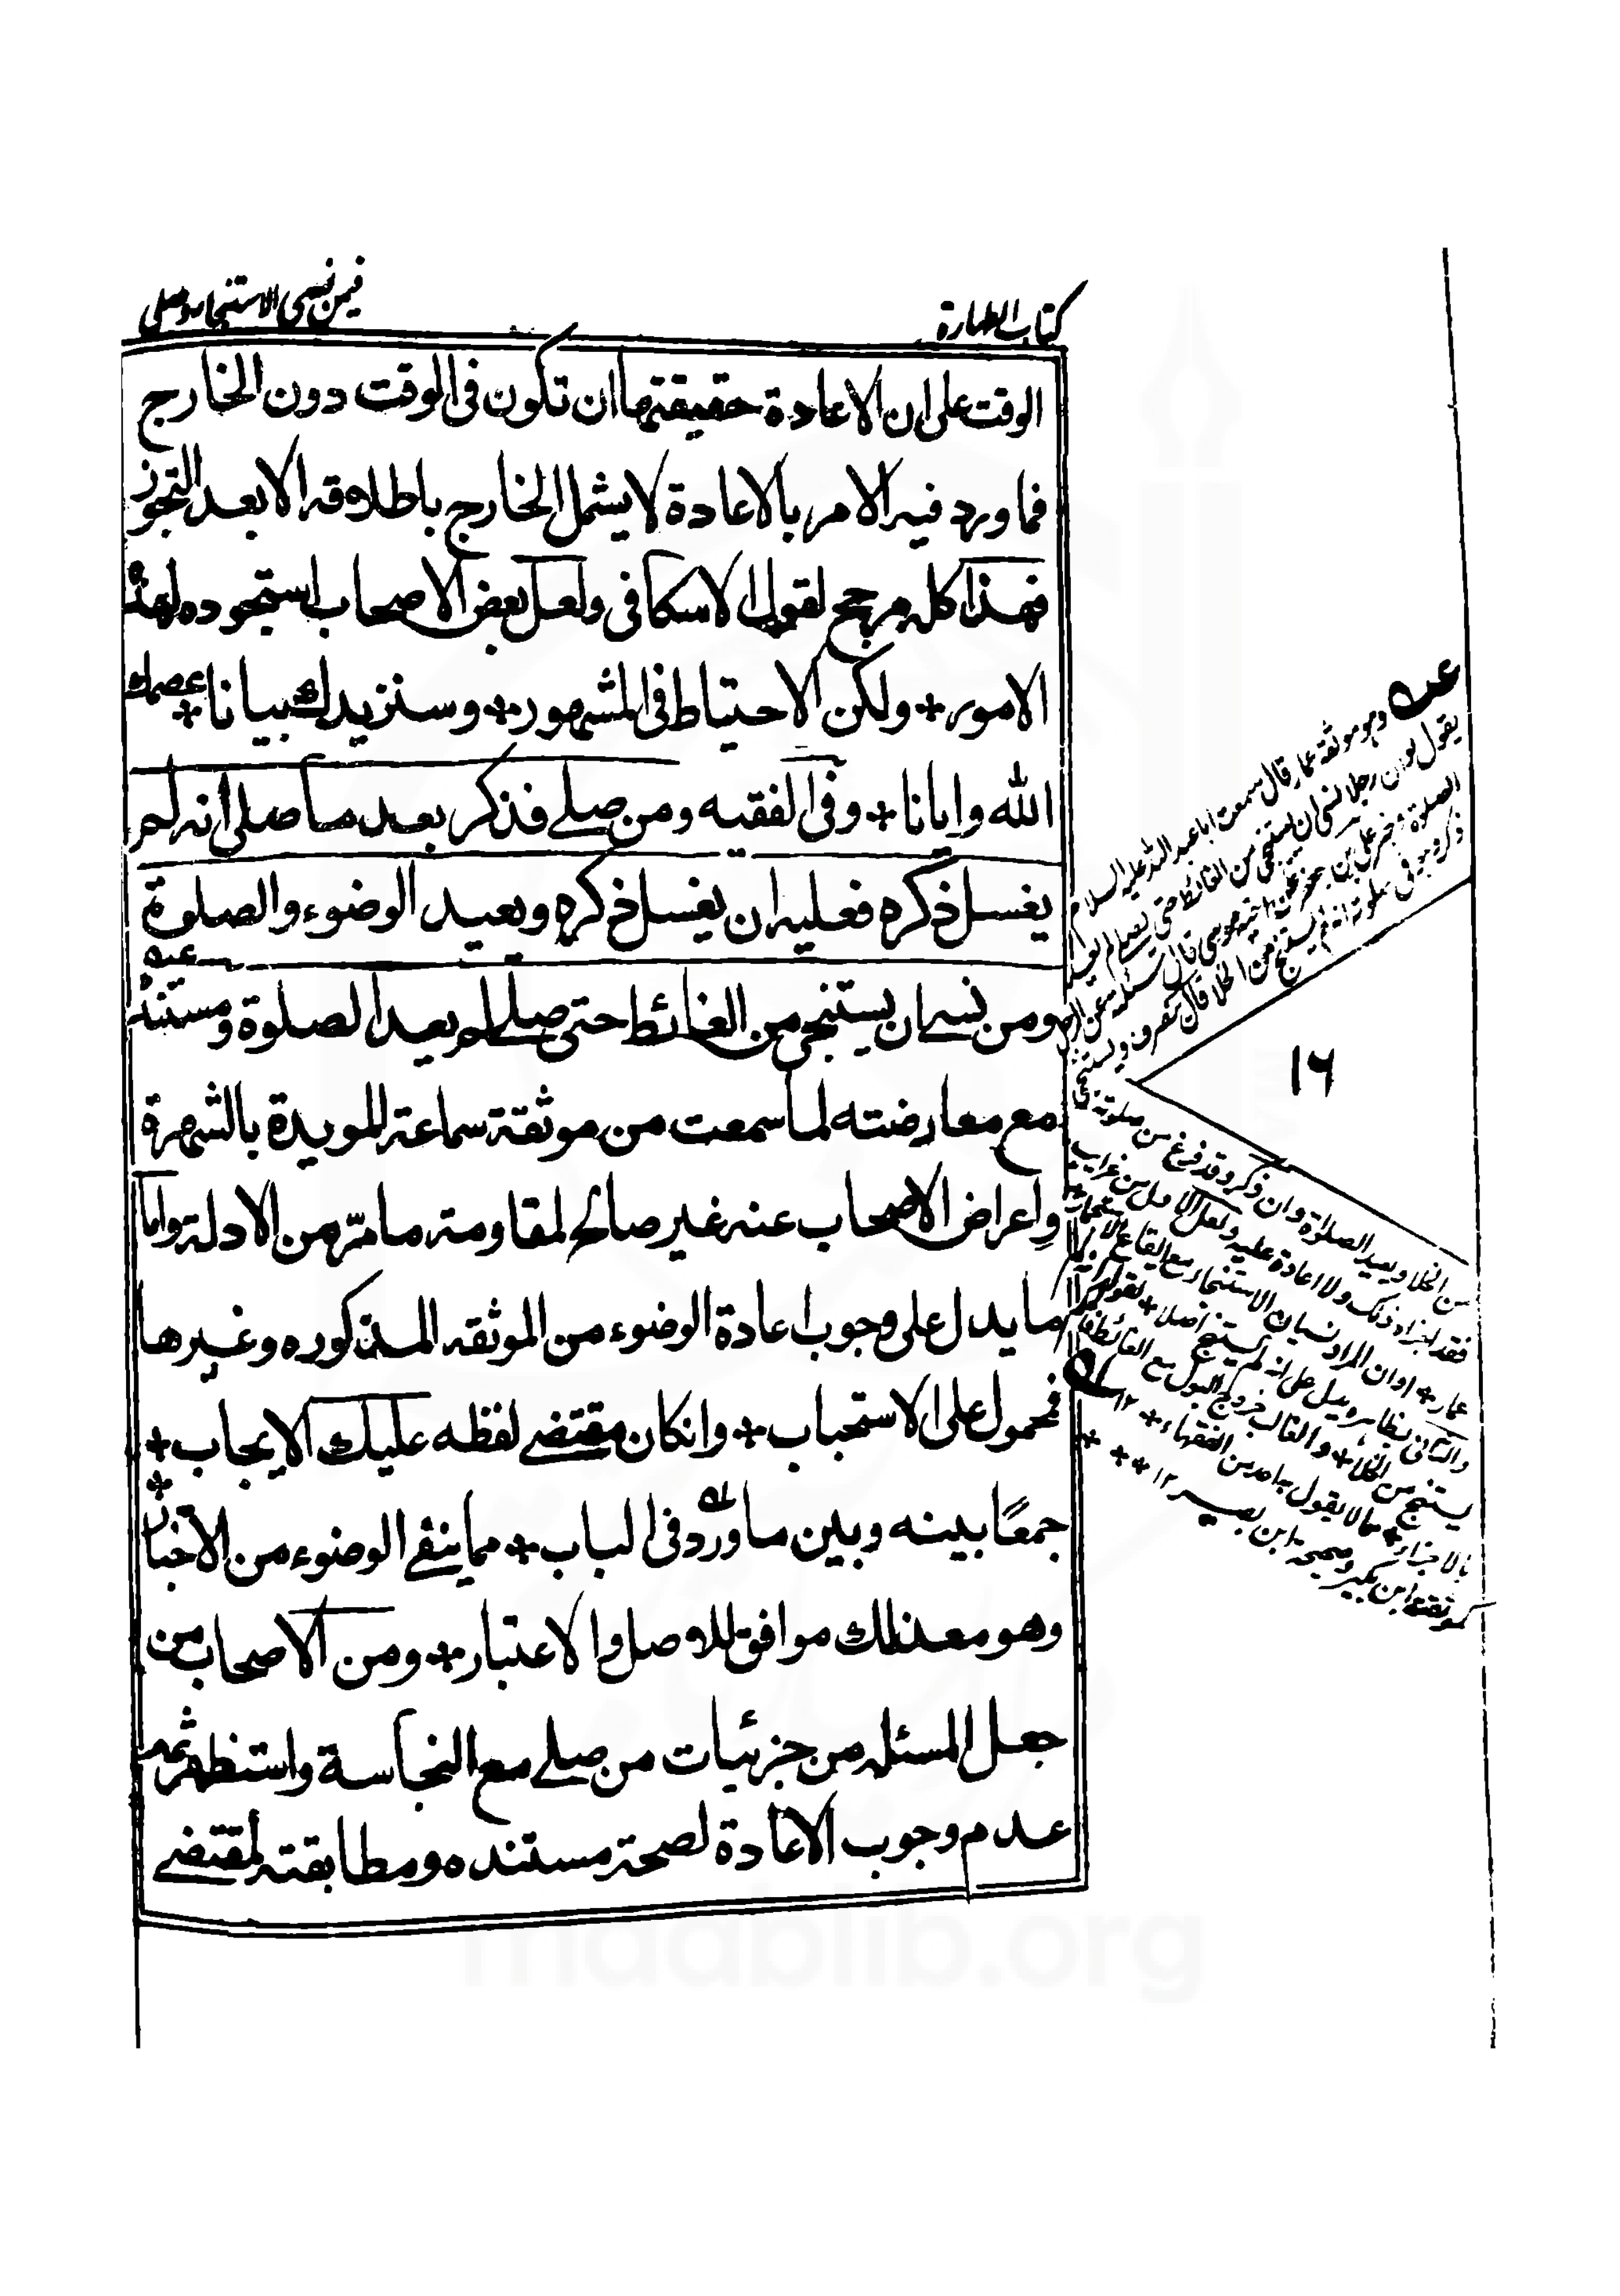 كتاب الطهارة
فيمن نسى الاستنجاء وصلى
الوقت على ان الاعادة حقيقتها ان تكون فى الوقت دون الخارج
فما ورد فيه الامر بالاعادة لا يشمل الخارج باطلاقه الا بعد التجوز
فهذا كله مرجح لقول الاسكافى ولعل بعض الاصحاب استجوده لهذه
الامور + ولكن الاحتياط فى المشهور + وسنزيدك بيانا + عصمك
الله وايانا + وفى الفقيه ومن صلے فذكر بعد ما صلى انه لم
يغسل ذكره فعليه ان يغسل ذكره ويعيد الوضوء والصلوة
ومن نسى ان يستنجى من الغائط حتى صلے لم يعد الصلوة ومستنده
مع معارضته لما سمعت من موثقة سماعة المويدة بالشهرة
واعراض الاصحاب عنه غير صالح لمقاومة ما مرّ من الادلة واما
ما يدل على وجوب اعادة الوضوء من الموثقه المذكوره وغيرها
فمحمول على الاستحباب + وانكان مقتضے لفظه عليك الايجاب +
جمعًا بينه وبين ما ورد فى الباب + مما ينفے الوضوء من الاخبار +
وهو مع ذلك موافق للاصل والاعتبار + ومن الاصحاب من
جعل المسئله من جزئيات من صلے مع النجاسة واستظهر ثمه
عدم وجوب الاعادة لصحة مستنده ومطابقته لمقتضے
وهو موثقة عمار قال سمعت ابا عبد الله عليه السلام
يقول لو ان رجلا نسى ان يستنجى من الغائط حتى يصلے لم يعد
الصلوة وخبر على بن جعفر عن اخيه موسى قال سئلته عن الرجل
ذكر وهو فى صلوته انه لم يستنج من الخلا قال ينصرف ويستنجى
١٦
من الخلا ويعيد الصلاة وان ذكر وقد فرغ من صلوته
فقد اجزاه ذلك ولا اعادة عليه ولعل الاول من غرايب
عمار + او ان المراد نسيان الاستنجاء مع ايقاع الاستجمار
والثانى بظاهره يدل على انه لم يستنج اصلا +
يستنج من الخلا + والغالب خروج البول مع الغائط
بالاجزاء + مما لا يقول به احد من الفقهاء + ١٢
كموثقة ابن بكير وصحيحة ابن بصير ١٢ + +